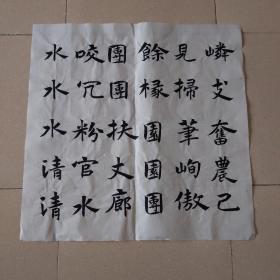 嶙支奮農己
見掃筆峋傲
餘椽園園團
團團扶丈廊
咬冗粉官水
水水水清清